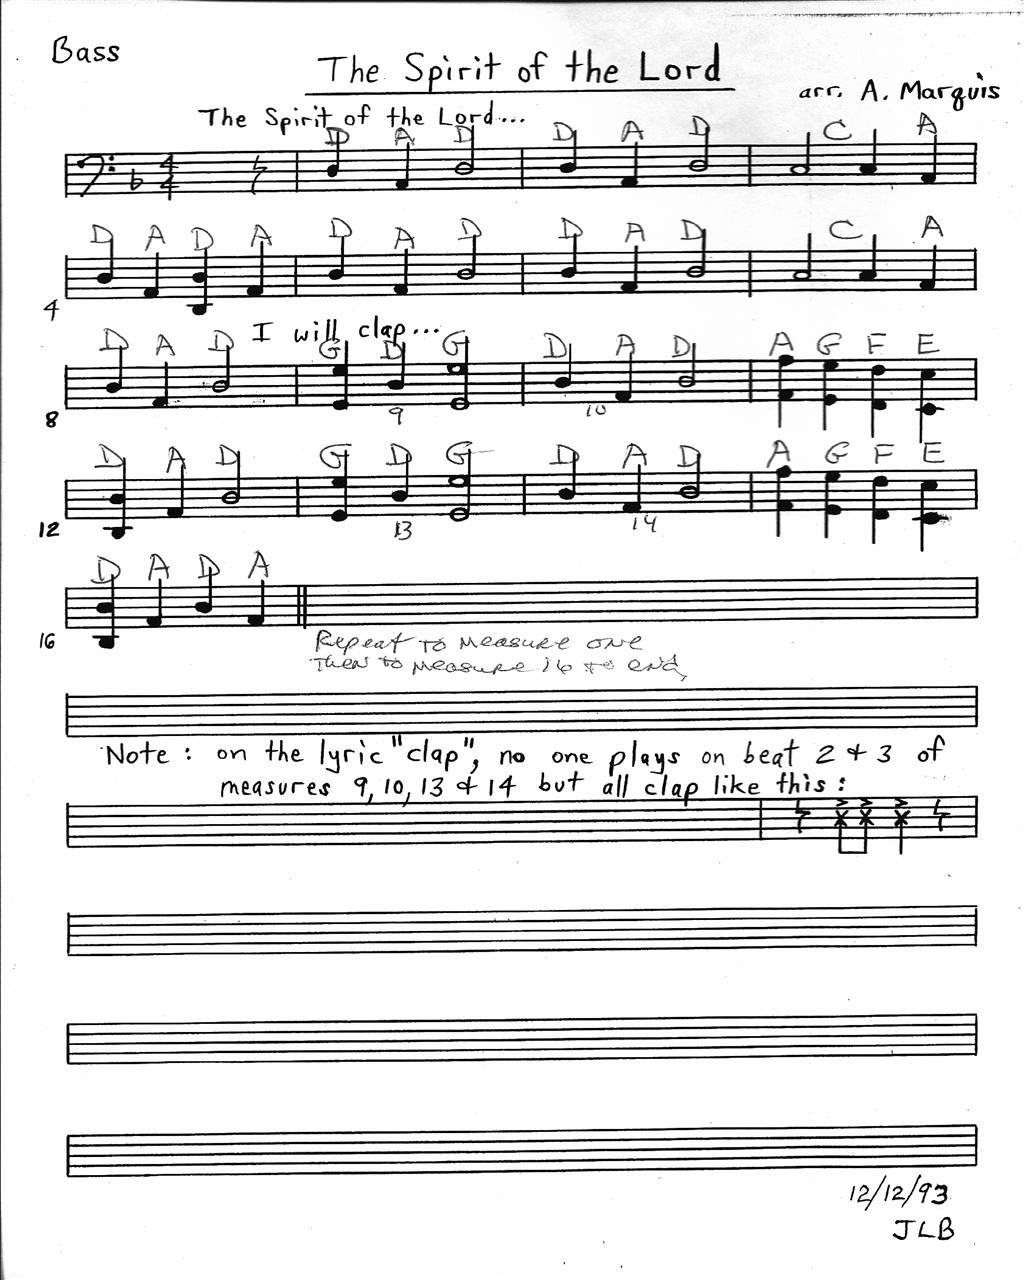 Bass
The Spirit of the Lord
arr. A. Marquis
The Spirit of the Lord...
D A D D A D C A
4
4
D A D A D A D D A D C A
4
I will clap...
D A D G D G D A D A G F E
8 9 10
D A D G D G D A D A G F E
12 13 14
D A D A
16
Repeat to measure one
Then to measure 16 to end,
Note: on the lyric "clap", no one plays on beat 2 + 3 of
measures 9, 10, 13 + 14 but all clap like this:
12/12/93
JLB